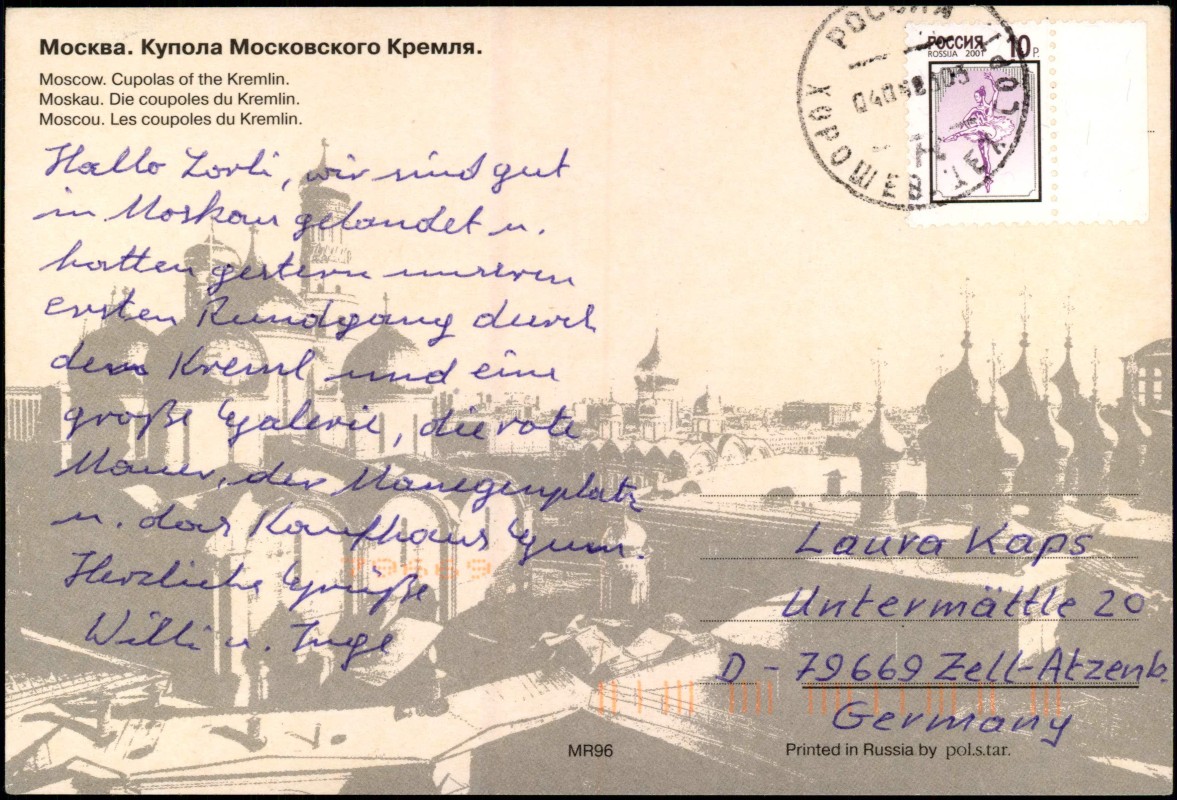 Москва. Купола Московского Кремля.
Moscow. Cupolas of the Kremlin.
Moskau. Die coupoles du Kremlin.
Moscou. Les coupoles du Kremlin.
РОССИЯ 10 Р.
ROSSIJA 2001
РОССИЯ
Hallo Lorli, wir sind gut
in Moskau gelandet u.
hatten gestern unseren
ersten Rundgang durch
den Kreml und eine
große Galerie, die rote
Mauer, der Manegenplatz
u. das Kaufhaus Gum.
Herzliche Grüße
Willi u. Inge
79669
Laura Kaps
Untermättle 20
D - 79669 Zell-Atzenb.
Germany
MR96
Printed in Russia by pol.s.tar.